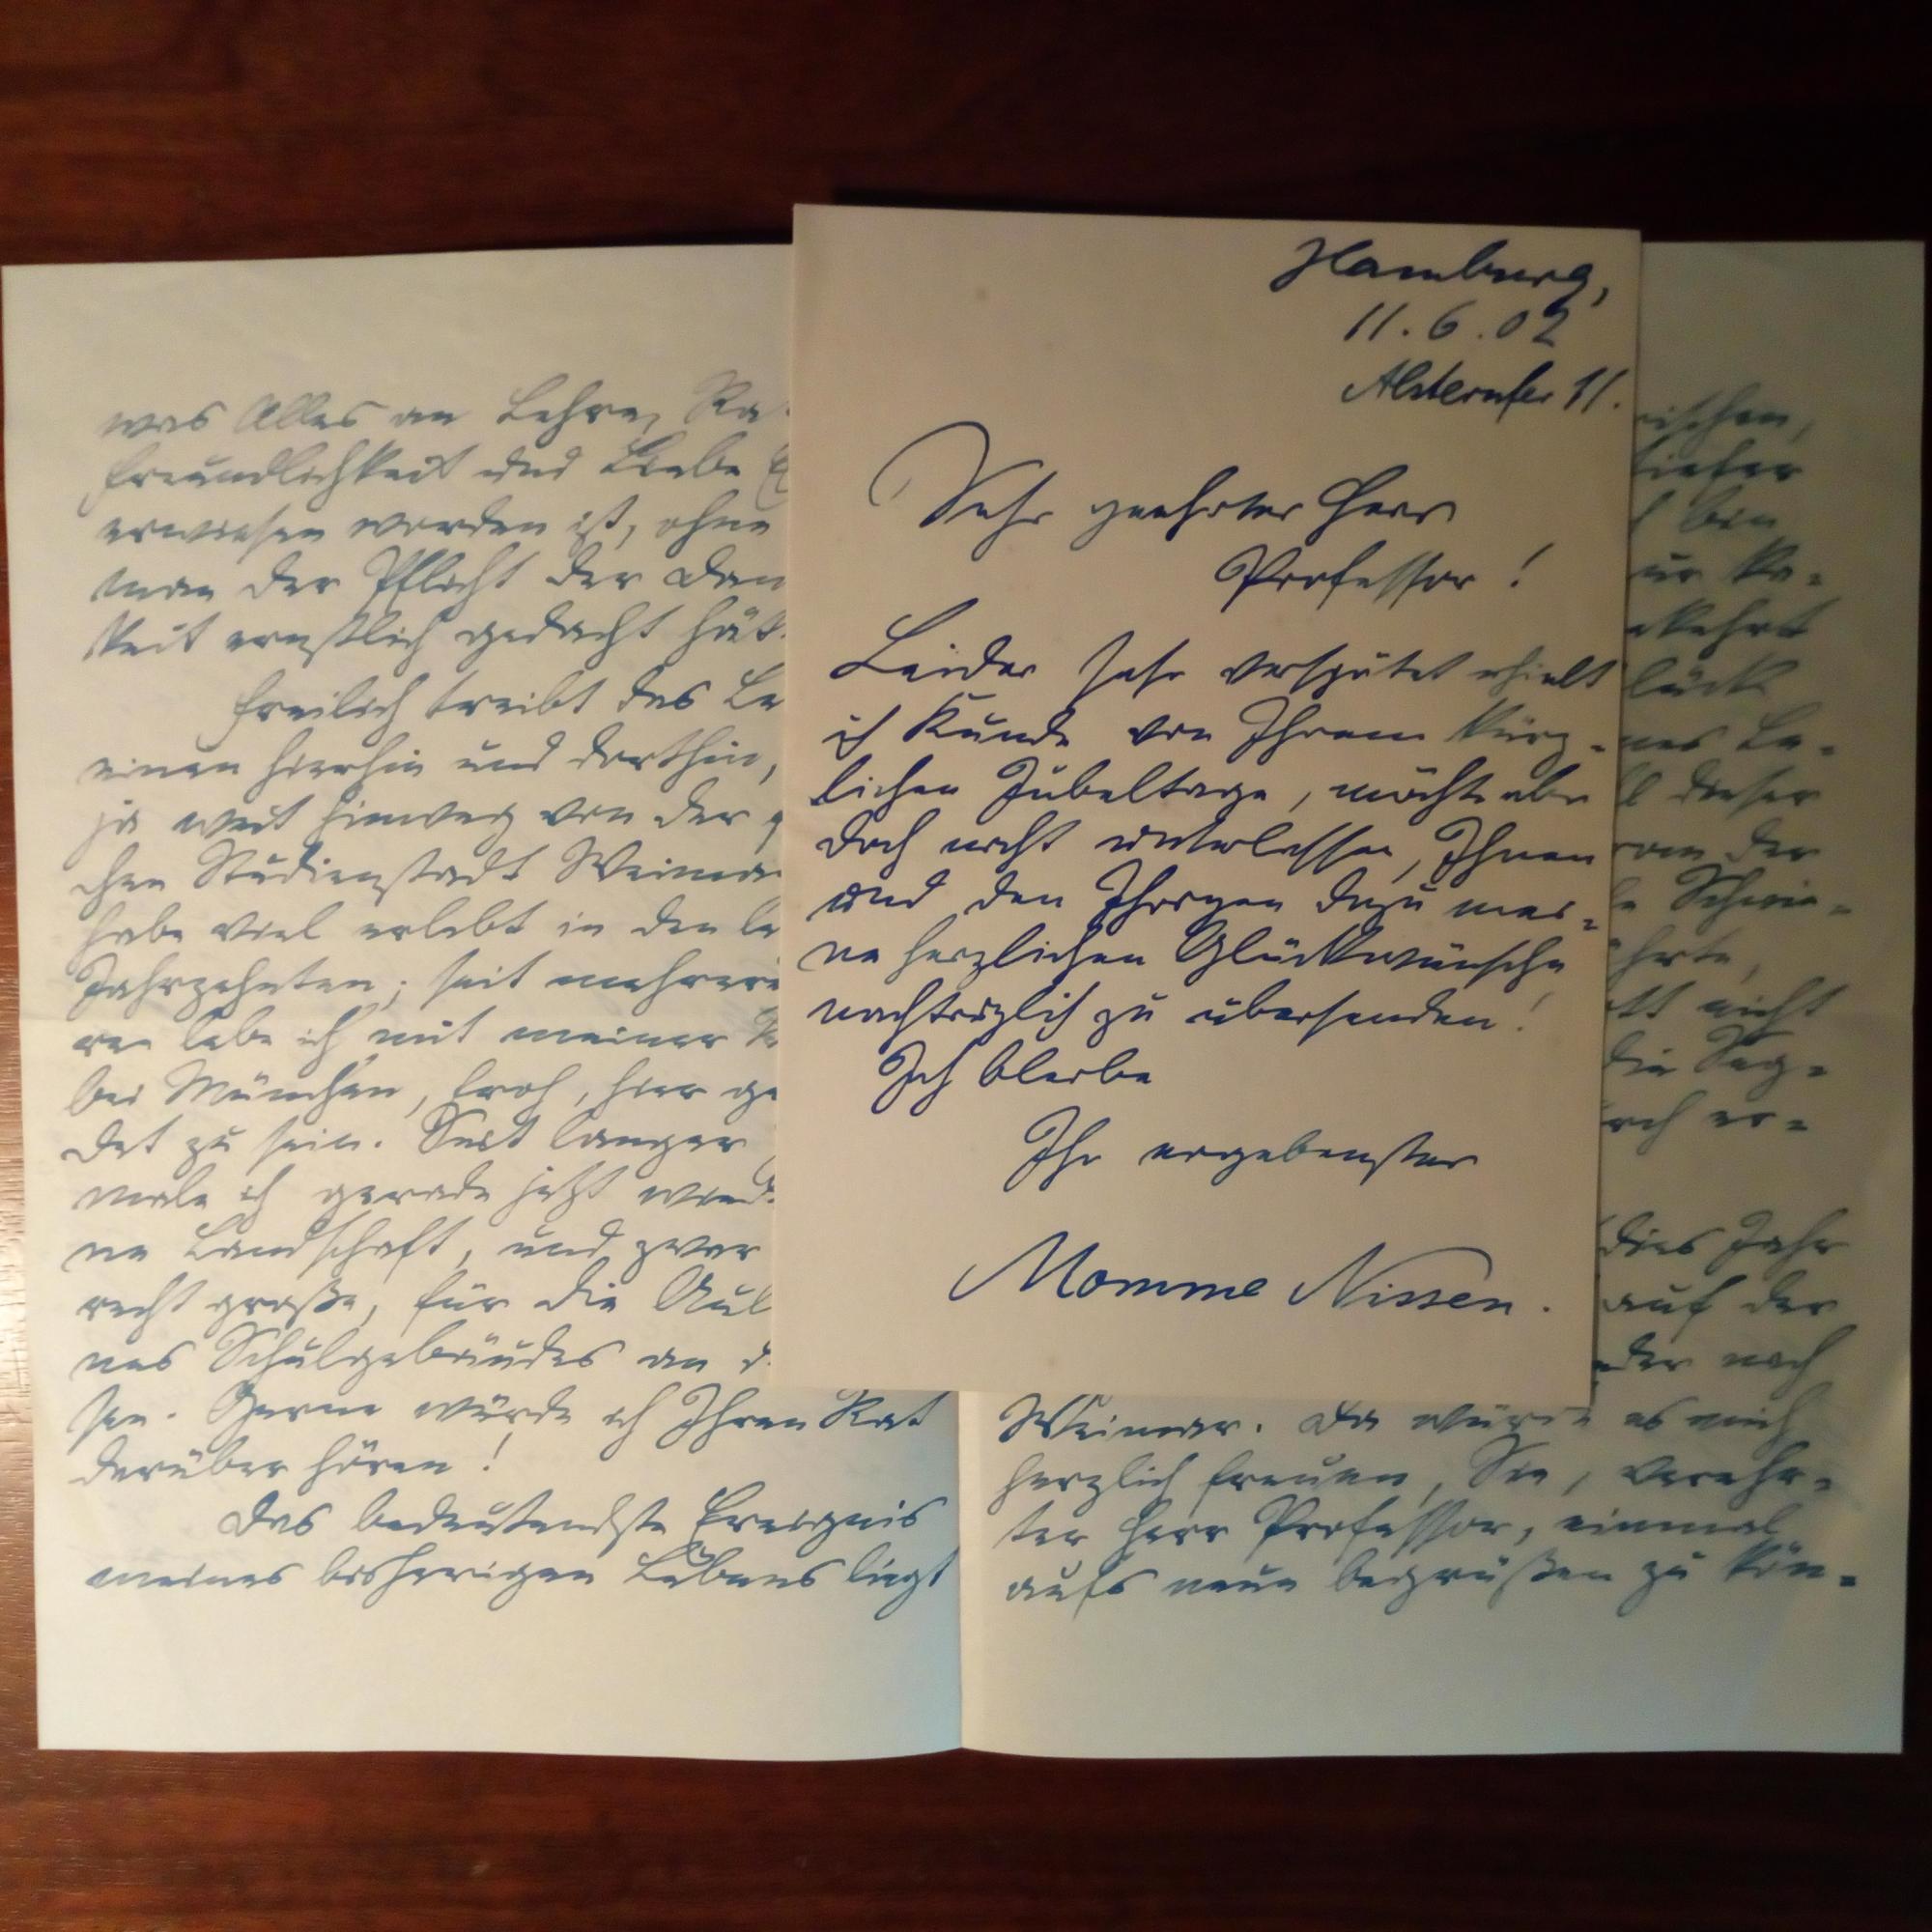 Hamburg,
11.6.02
Alsterufer 11.
Sehr geehrter Herr
Professor!
Leider sehr verspätet erhielt
ich Kunde von Ihrem kürz-
lichen Jubeltage, möchte aber
doch nicht unterlassen, Ihnen
und den Ihrigen dazu mei-
ne herzlichen Glückwünsche
nachträglich zu übersenden!
Ich bleibe
Ihr ergebenster
Momme Nissen.
was Alles an Lehre, Ra
Freundlichkeit und Liebe
erwiesen worden ist, ohne
man der Pflicht der Dan
keit ernstlich gedacht hät
Freilich treibt das Le
einen hierhin und dorthin,
ja weit hinweg von der
chen Studienstadt Weima
habe viel erlebt in den le
Jahrzehnten; seit mehrere
ren lebe ich mit meiner
bei München, froh, hier ge
det zu sein. Seit langer
male ich gerade jetzt wied
ne Landschaft, und zwar
recht große, für die Aul
nes Schulgebäudes an d
sen. Gerne würde ich Ihren Rat
darüber hören!
Das bedeutendste Ereignis
meines bisherigen Lebens liegt
rischen,
tiefer
bin
ur Ka-
kehrt
lück
nes Le-
l dieser
von der
Schwie-
hrte,
tt nicht
die Seg-
rch er-
dies Jahr
auf der
der nach
Weimar. Da würde es mich
herzlich freuen, Sie, verehr-
ter Herr Professor, einmal
aufs neue begrüßen zu kön-